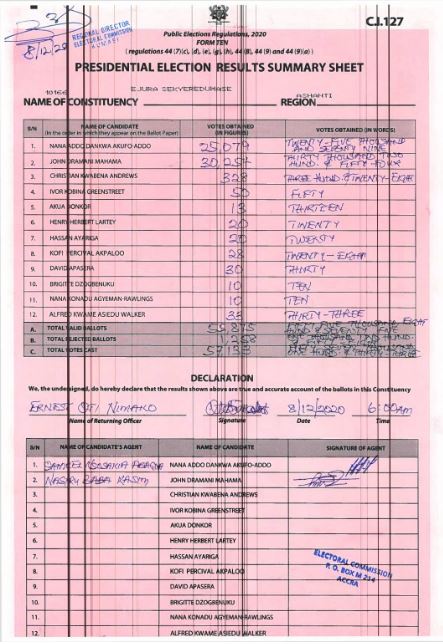 C.I.127
Public Elections Regulations, 2020
FORM TEN
(regulations 44 (7)(c), (d), (e), (g), (h), 44 (8), 44 (9) and 44 (9)(a))
REGIONAL DIRECTOR
ELECTORAL COMMISSION
8/12/20
PRESIDENTIAL ELECTION RESULTS SUMMARY SHEET
EJURA SEKYEREDUMASE
ASHANTI
NAME OF CONSTITUENCY REGION
S/N NAME OF CANDIDATE (In the order in which they appear on the Ballot Paper) VOTES OBTAINED (IN FIGURES) VOTES OBTAINED (IN WORDS)
1. NANA ADDO DANKWA AKUFO-ADDO 25,079 TWENTY-FIVE THOUSAND AND SEVENTY NINE
2. JOHN DRAMANI MAHAMA 30,254 THIRTY THOUSAND TWO HUND. & FIFTY-FOUR
3. CHRISTIAN KWABENA ANDREWS 328 THREE HUND. & TWENTY-EIGHT
4. IVOR KOBINA GREENSTREET 50 FIFTY
5. AKUA DONKOR 13 THIRTEEN
6. HENRY HERBERT LARTEY 20 TWENTY
7. HASSAN AYARIGA 20 TWENTY
8. KOFI PERCIVAL AKPALOO 28 TWENTY-EIGHT
9. DAVID APASERA 30 THIRTY
10. BRIGITTE DZOGBENUKU 10 TEN
11. NANA KONADU AGYEMAN-RAWLINGS 10 TEN
12. ALFRED KWAME ASIEDU WALKER 33 THIRTY-THREE
A. TOTAL VALID BALLOTS 55,875
B. TOTAL REJECTED BALLOTS 1,258
C. TOTAL VOTES CAST 57,133
DECLARATION
We, the undersigned, do hereby declare that the results shown above are true and accurate account of the ballots in this Constituency
ERNEST OFI NIMAKO 8/12/2020 6:00AM
Name of Returning Officer Signature Date Time
S/N NAME OF CANDIDATE'S AGENT NAME OF CANDIDATE SIGNATURE OF AGENT
1. NANA ADDO DANKWA AKUFO-ADDO
2. NASIRU BABA KASIM JOHN DRAMANI MAHAMA
3. CHRISTIAN KWABENA ANDREWS
4. IVOR KOBINA GREENSTREET
5. AKUA DONKOR
6. HENRY HERBERT LARTEY
7. HASSAN AYARIGA
8. KOFI PERCIVAL AKPALOO
9. DAVID APASERA
10. BRIGITTE DZOGBENUKU
11. NANA KONADU AGYEMAN-RAWLINGS
12. ALFRED KWAME ASIEDU WALKER
ELECTORAL COMMISSION
P. O. BOX M 214
ACCRA